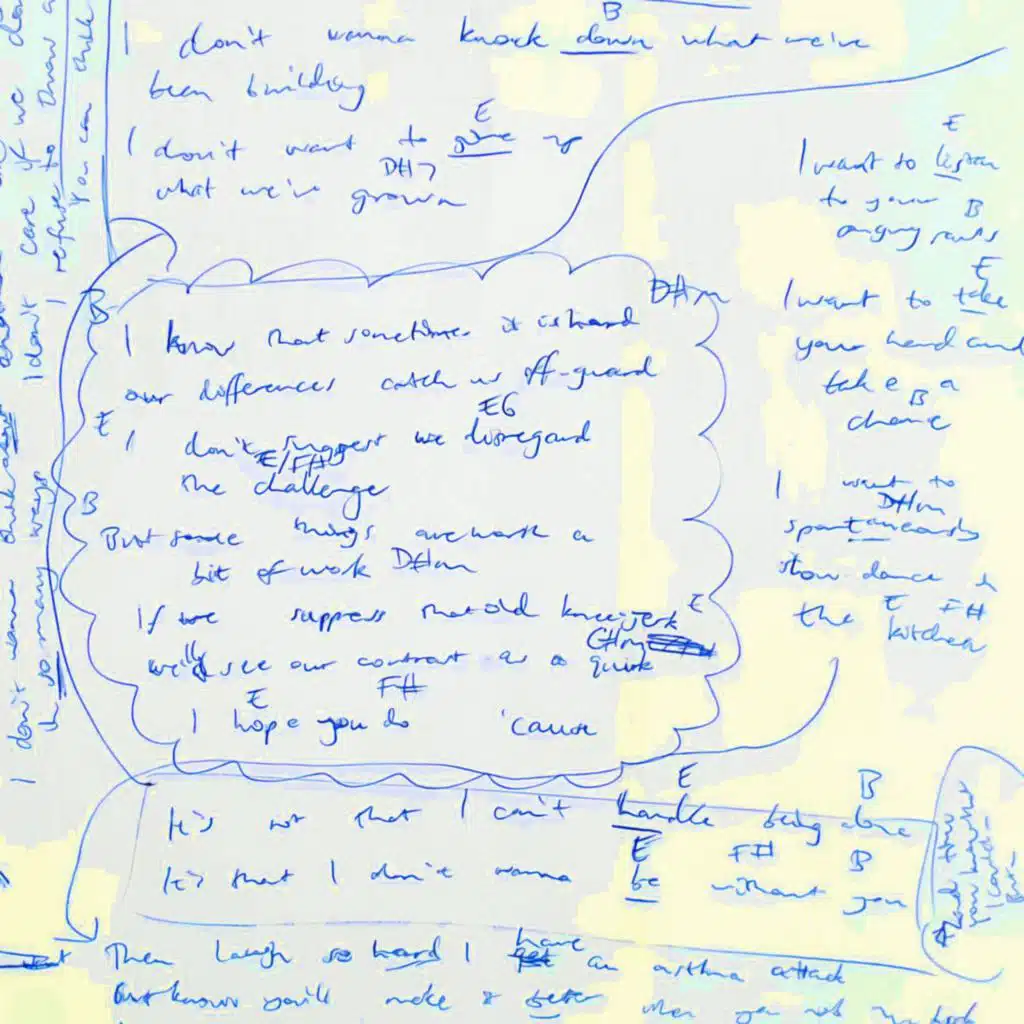 B
I don't wanna knock down what we've
been building
E
I don't want to give up
D#7
what we've grown
B
D#m
I know that sometimes it is hard
our differences catch us off-guard
E
E6
I don't suggest we disregard
E/F#
the challenge
B
But some things are worth a
bit of work D#m
If we suppress that old kneejerk E
G#m
we'll see our contrast as a quirk
E F#
I hope you do 'cause
E B
It's not that I can't handle being alone
E F# B
It's that I don't wanna be without you
Then laugh so hard I have an asthma attack
But know you'll make it better when you rub my back
E
I want to listen
to your B
angry rants
E
I want to take
your hand and
take a
B
chance
I want to
D#m
spontaneously
slow-dance in
E F#
the kitchen
you know that
I could
But
I don't care if we
I refuse to throw a
You can
I don't wanna
in so many ways